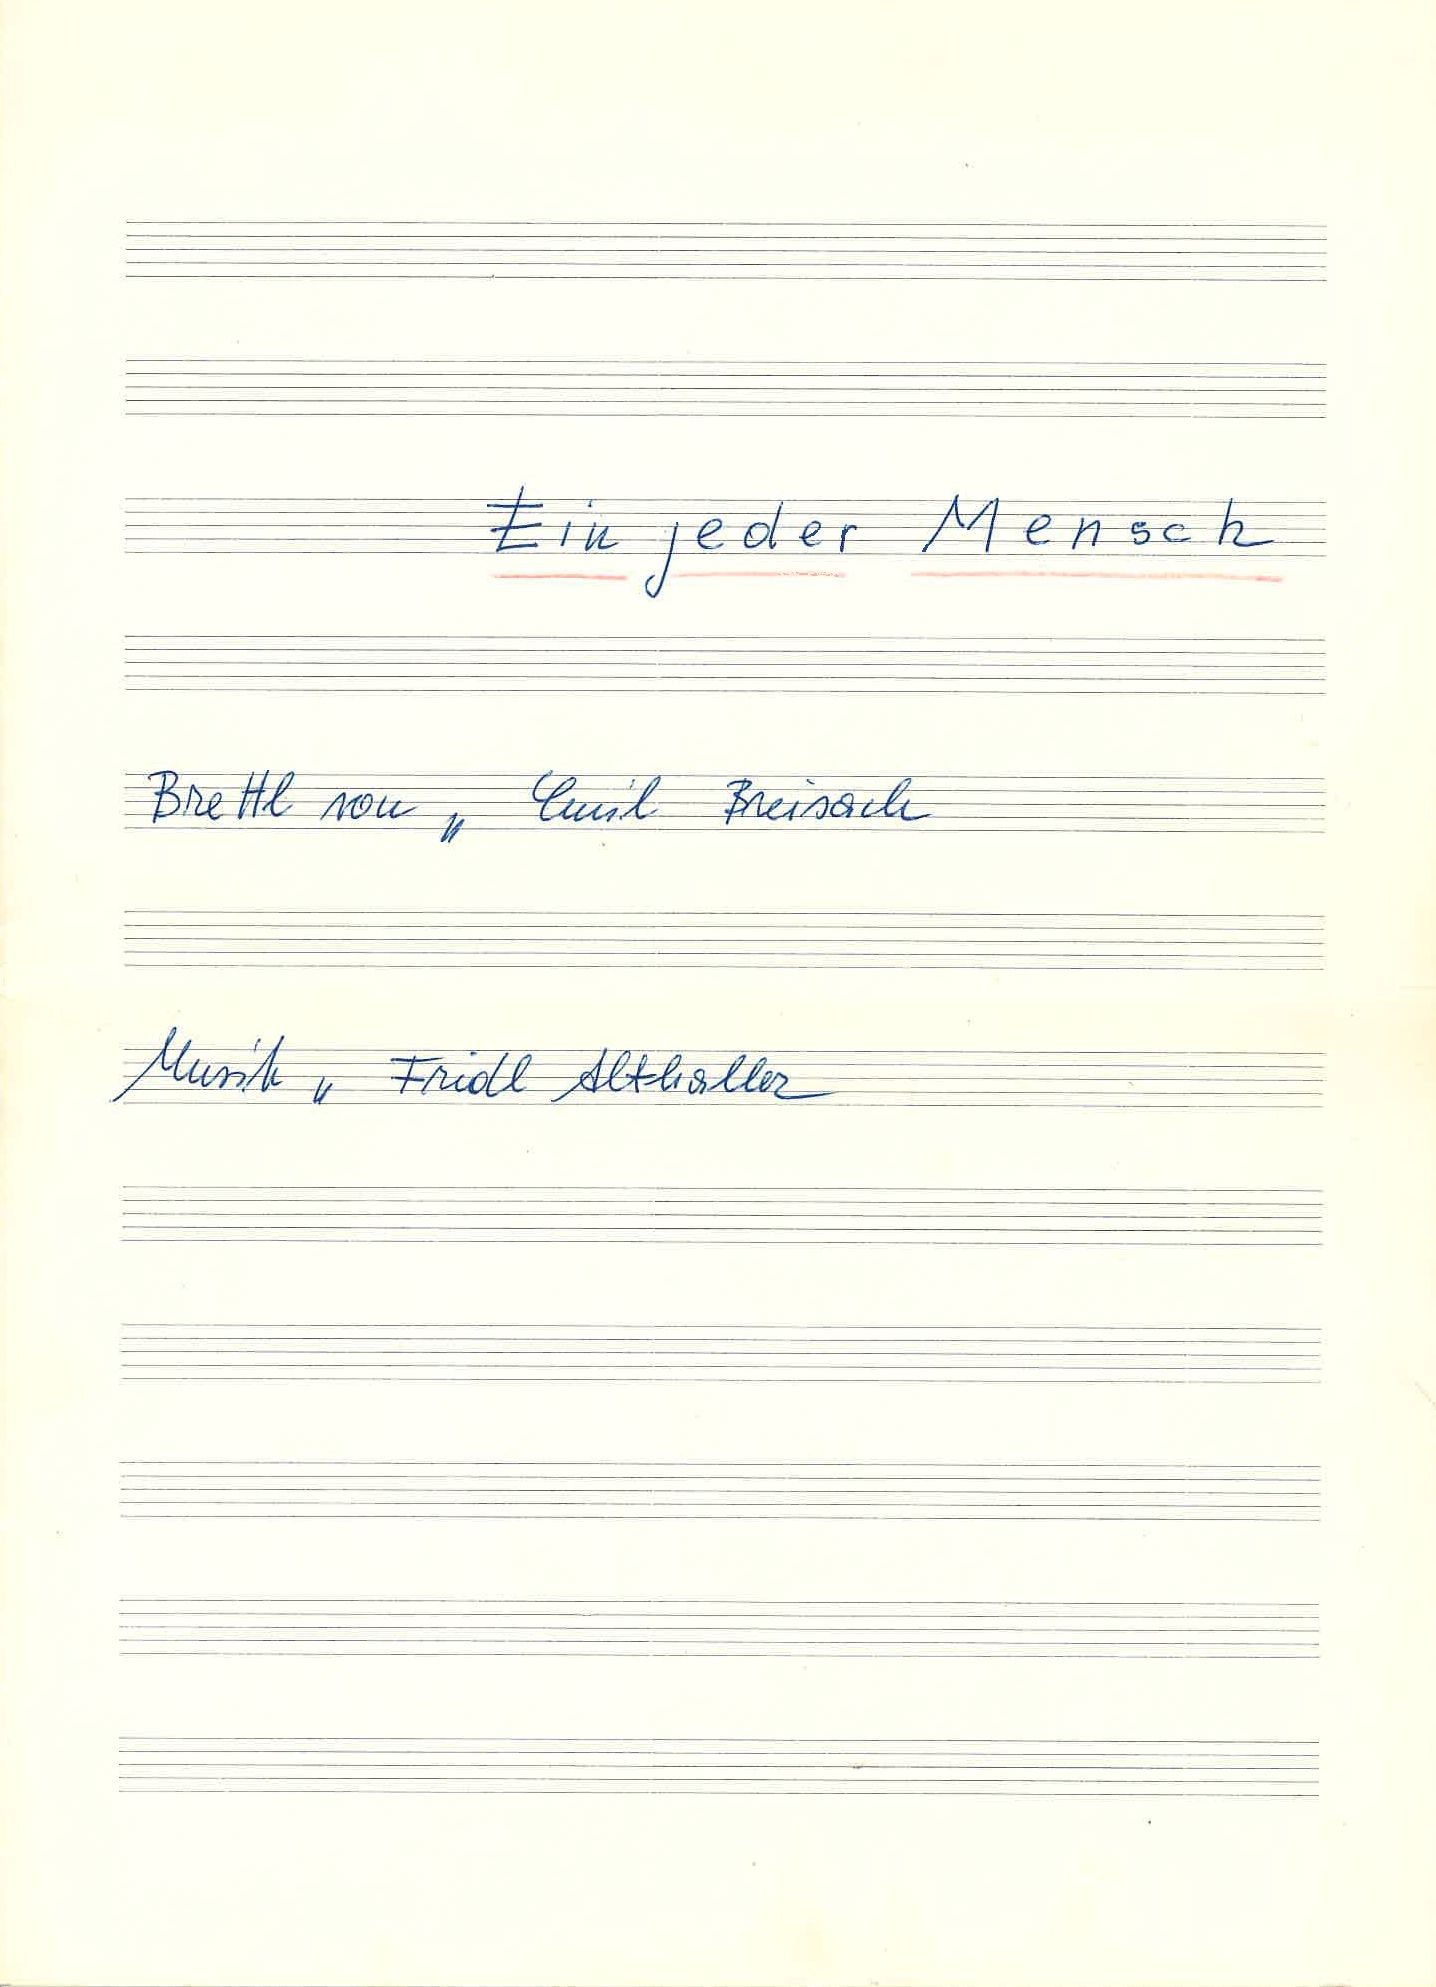 Ein jeder Mensch
Brettl von „ Emil Breisach
Musik „ Fridl Althaller